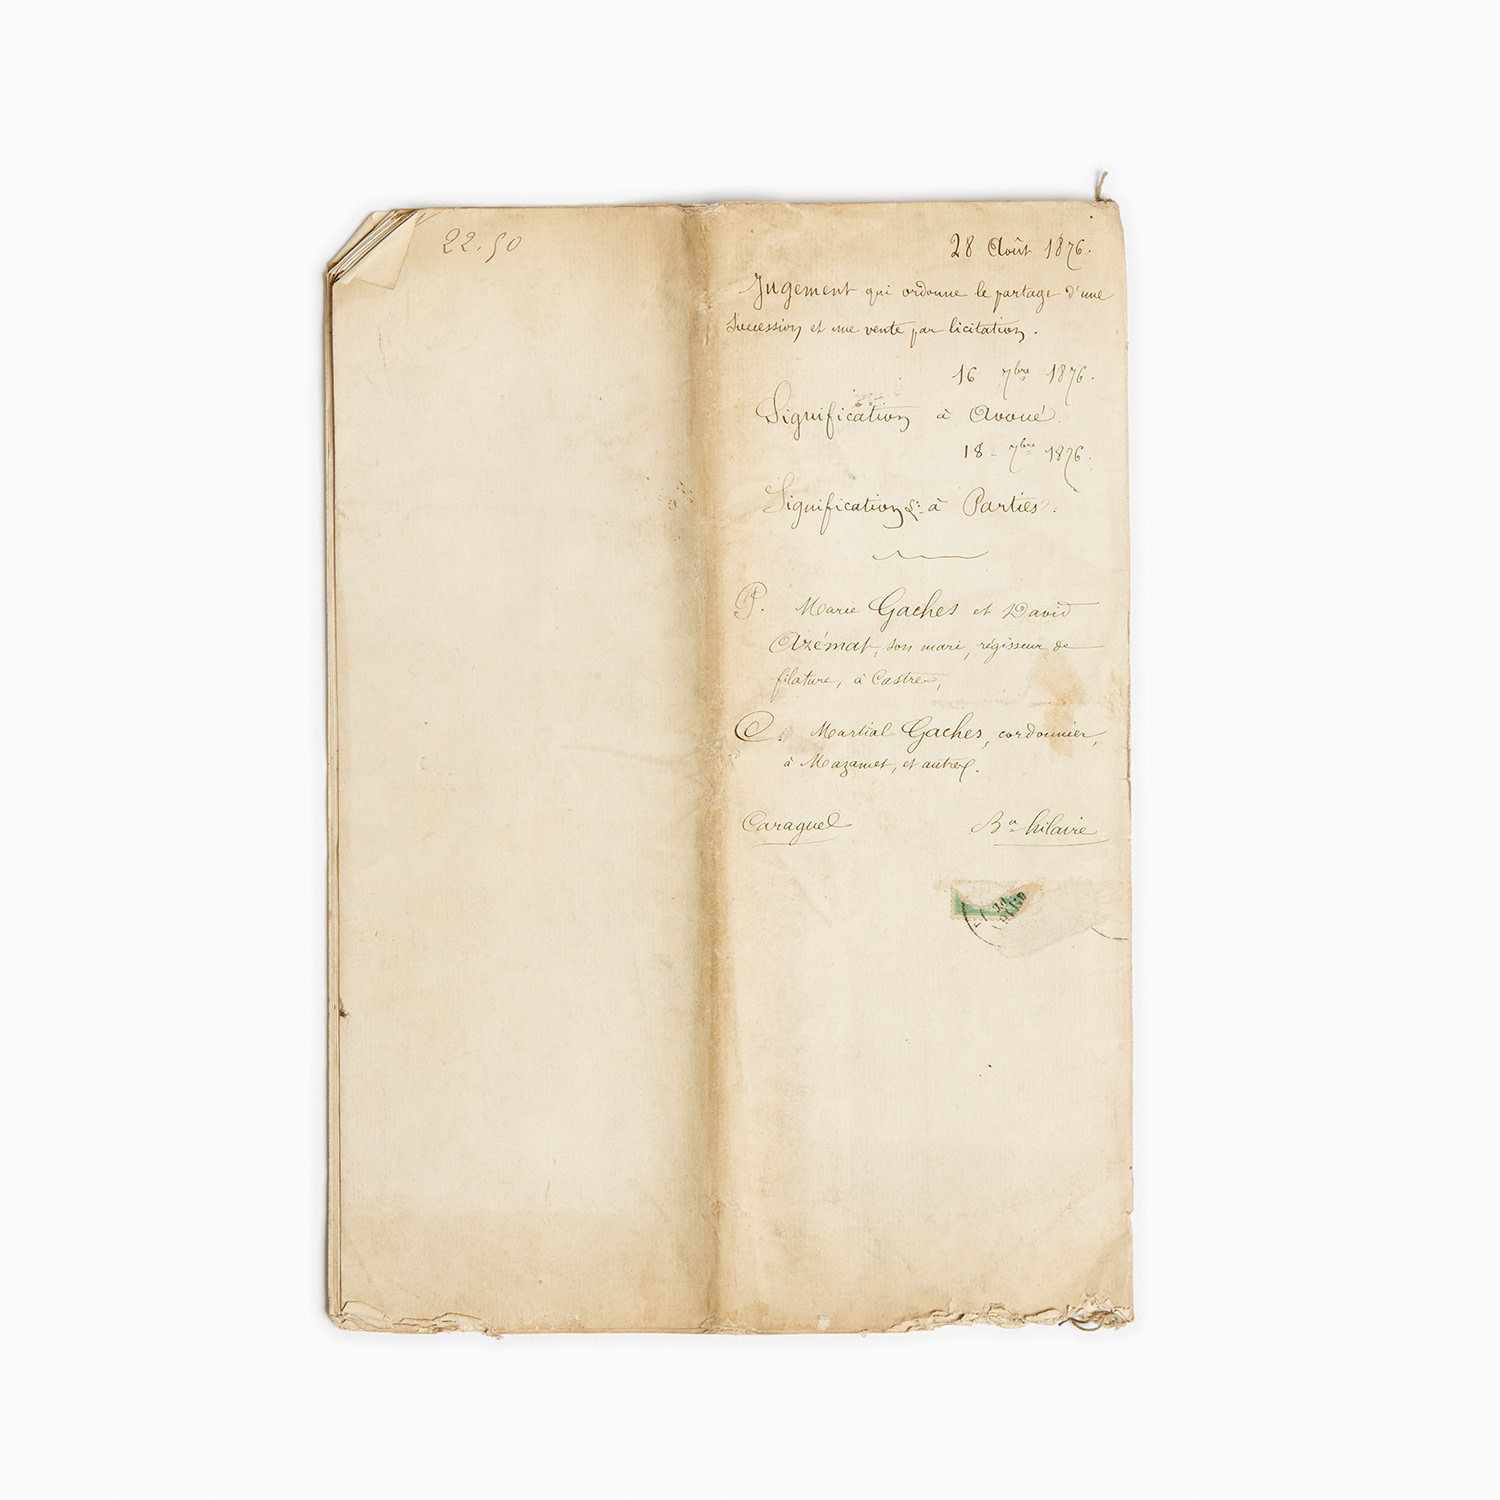 22.50
28 Août 1876.
Jugement qui ordonne le partage d'une
Succession et une vente par licitation.
16 7bre 1876.
Signification à Avoué
18 - 7bre 1876.
Signification à Parties.
P. Marie Gaches et David
Azémat, son mari, régisseur de
filature, à Castres,
C. Martial Gaches, cordonnier,
à Mazamet, et autres.
Caraguel
Bon hilaire